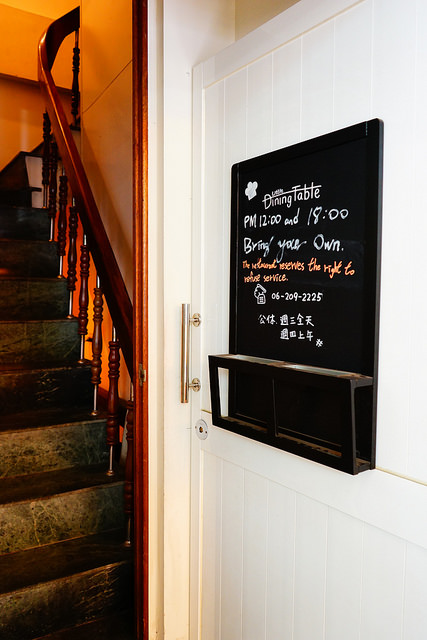 Little
Dining Table
PM 12:00 and 18:00
Bring your Own.
The restaurant reserves the right to
refuse service.
06-209-2225
公休 週三全天
週四上午 ※